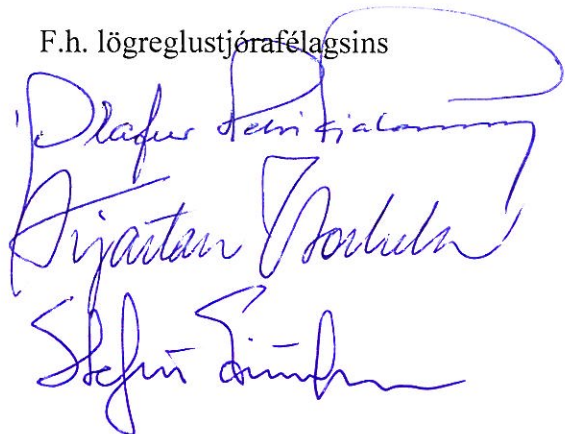 F.h. lögreglustjórafélagsins
Ólafur Helgi Kjartansson
Kjartan Þorkelsson
Stefán Eiríksson